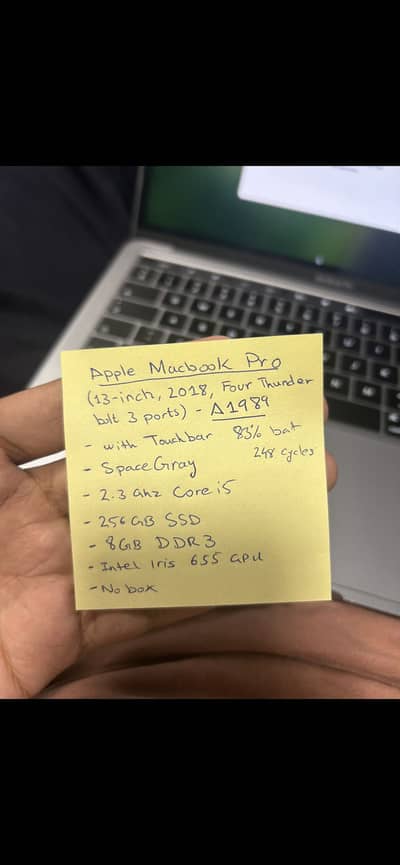 Apple Macbook Pro
(13-inch, 2018, Four Thunder
bolt 3 ports) - A1989
- with Touchbar 83% bat
248 cycles
- Space Gray
- 2.3 Ghz Core i5
- 256 GB SSD
- 8GB DDR3
- Intel Iris 655 GPU
- No box